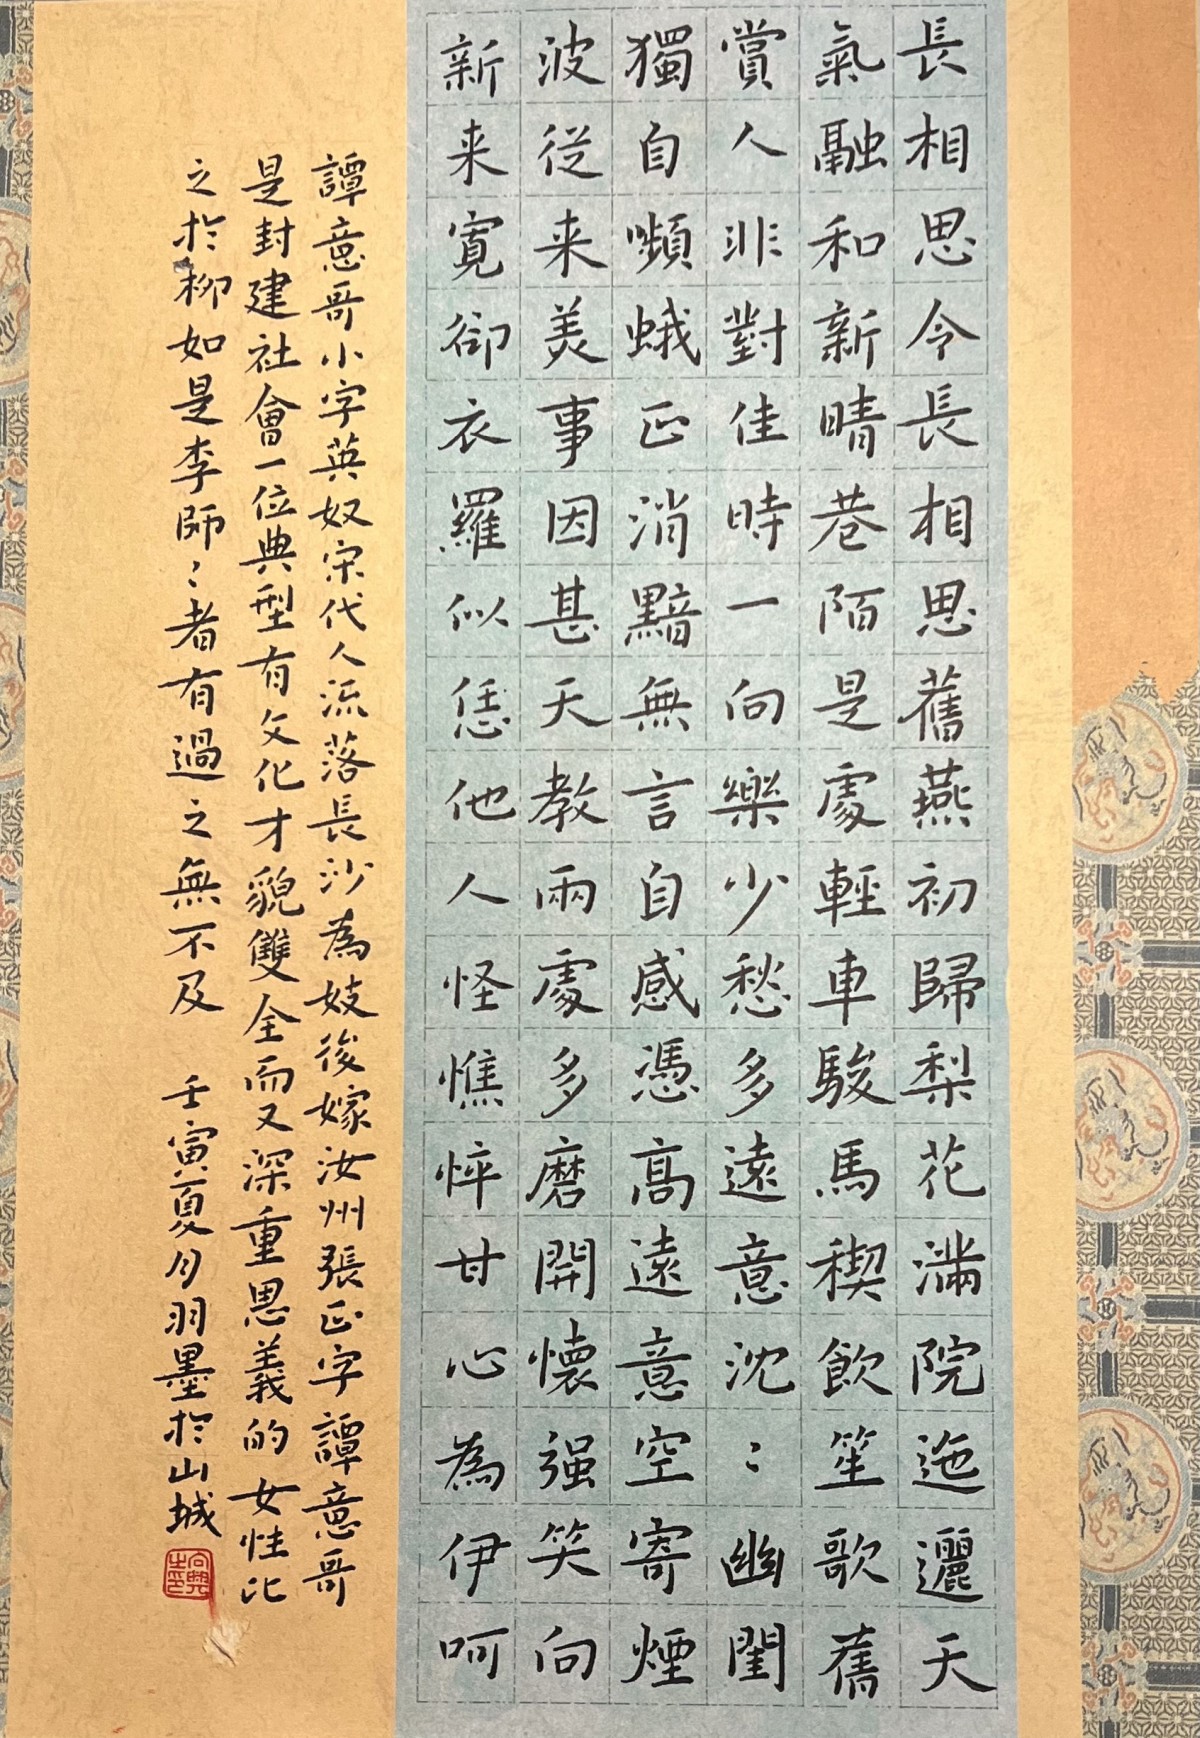 長相思令長相思舊燕初歸梨花滿院迤邐天
氣融和新晴巷陌是處輕車駿馬禊飲笙歌舊
賞人非對佳時一向樂少愁多遠意沈〻幽閨
獨自嚬蛾正消黯無言自感憑高遠意空寄煙
波從来美事因甚天教兩處多磨開懷强笑向
新来寬卻衣羅似恁他人怪憔悴甘心為伊呵
譚意哥小字英奴宋代人流落長沙為妓後嫁汝州張正字譚意哥
是封建社會一位典型有文化才貌雙全而又深重恩義的女性比
之於柳如是李師〻者有過之無不及 壬寅夏月羽墨於山城